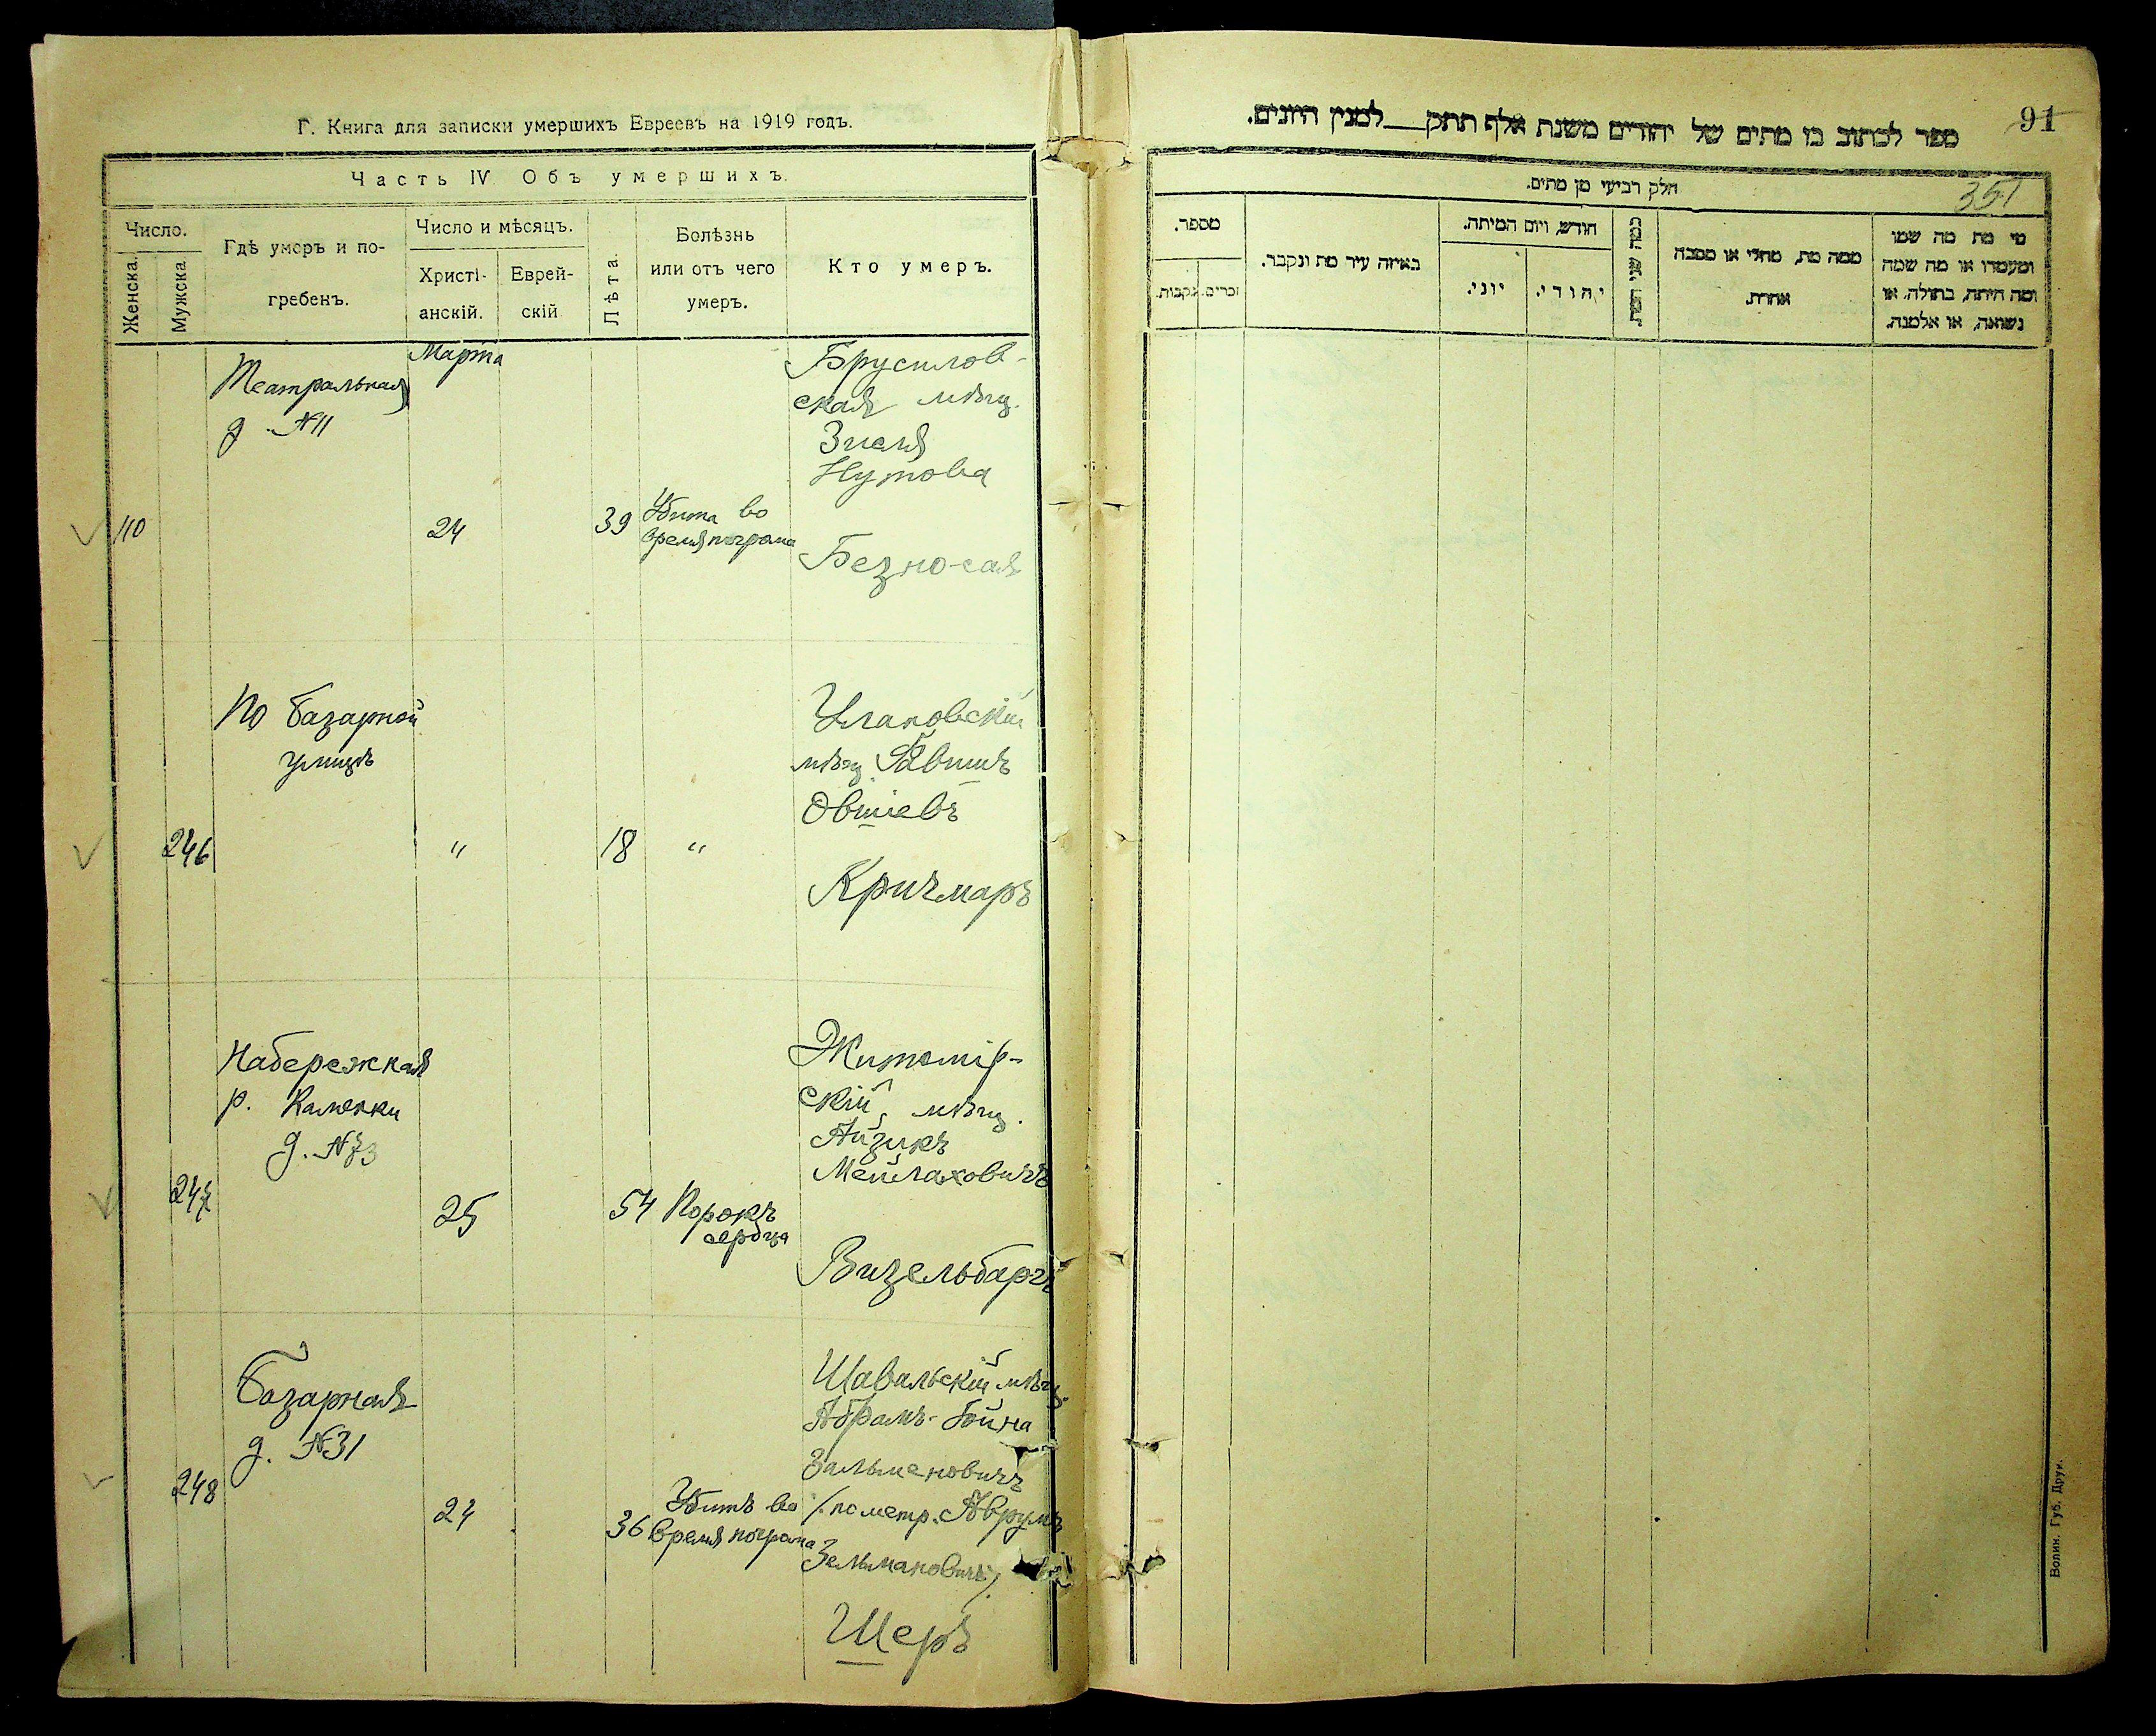 Г. Книга для записки умершихъ Евреевъ на 1919 годъ.
Часть IV. Объ умершихъ.
Число.
Женска.
Мужска.
Гдѣ умеръ и по-
гребенъ.
Число и мѣсяцъ.
Христі-
анскій.
Еврей-
скій
Лѣта.
Болѣзнь
или отъ чего
умеръ.
Кто умеръ.
110
Театральная
д. №11
Марта
24
39
Убита во
время погрома
Брусилов-
ская мѣщ.
Зисля
Нутова
Безносая
246
По базарной
улицѣ
"
18
"
Улановскій
мѣщ.
Овшіевъ
Кричмаръ
247
Набережная
р. Каменки
д. №73
25
54
Порокъ
сердца
Житомір-
скій мѣщ.
Айзикъ
Мейлаховичъ
Визельбаргъ
248
Базарная
д. №31
24
36
Убитъ во
время погрома
Шавальскій мѣщ.
Абрамъ-
Зальменовичъ
/. по метр. Аврумъ
Зельмановичъ/.
Шеръ
91
ספר לכתוב בו מתים של יהודים משנת אלף תתק__למנין היונים.
351
חלק רביעי מן מתים.
מספר.
נקבות.
זכרים.
באיזה עיר מת ונקבר.
חודש, ויום המיתה.
יוני.
יהודי.
כמה שני המת
ממה מת, מחלי או מסבה
אחרת.
מי מת מה שמו
ומעמדו או מה שמה
ומה היתה, בתולה, או
נשואה, או אלמנה.
Волин. Губ. Друк.